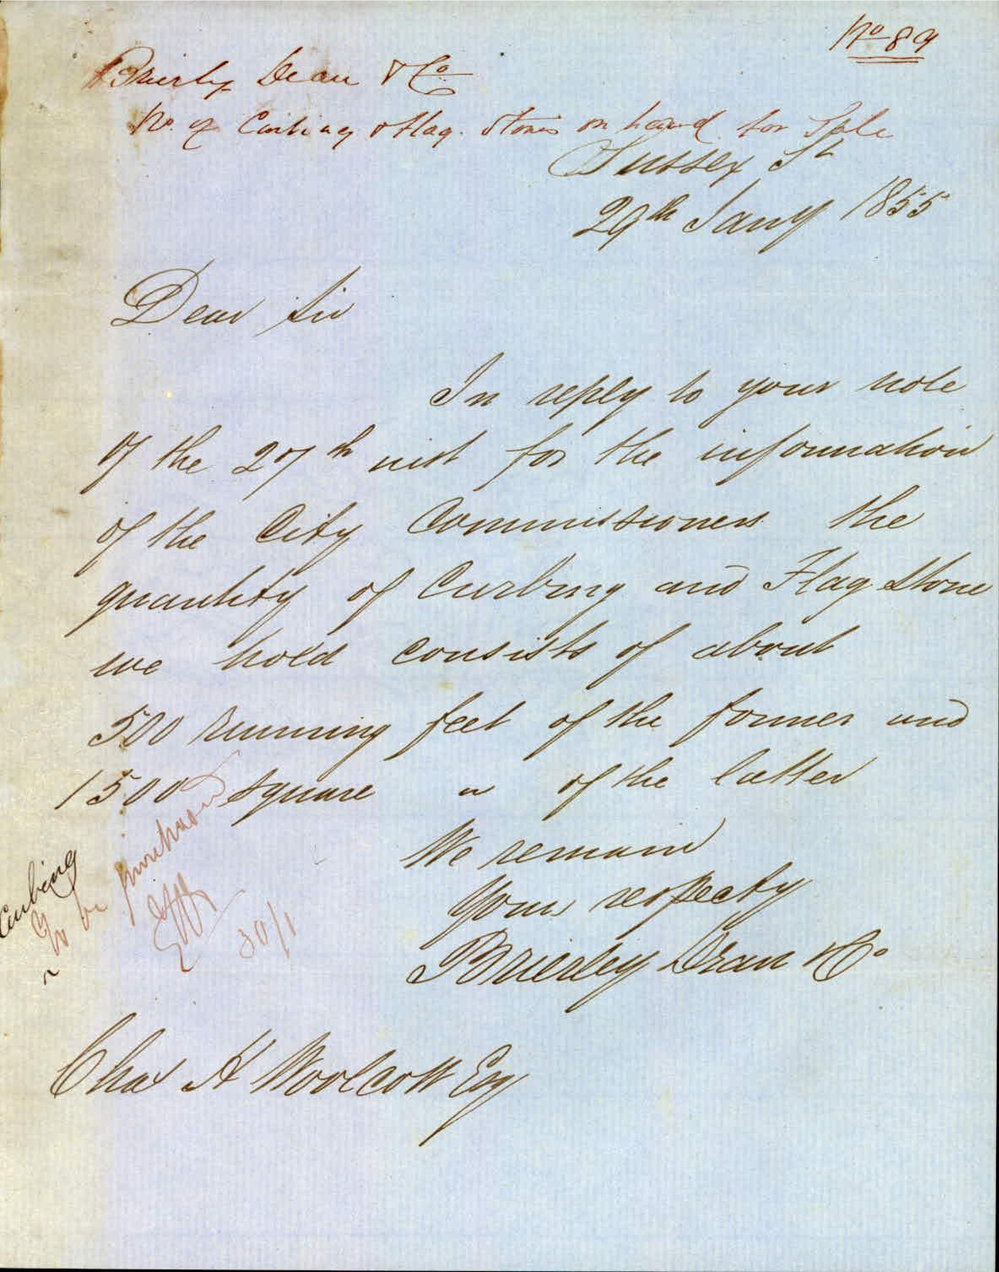 No 89
Brierly Dean & Co
No. of Curbing & flag. Stones on hand for Sale
Sussex St
29th Jany 1855
Dear Sir
In reply to your note
of the 27th inst for the information
of the City Commissioners the
quantity of Curbing and Flag Stone
we hold consists of about
500 running feet of the former and
1500 square " of the latter
We remain
Your respecty
Brierley Dean & Co
Curbing
to be purchased
30/1
Chas H Woolcott Esq